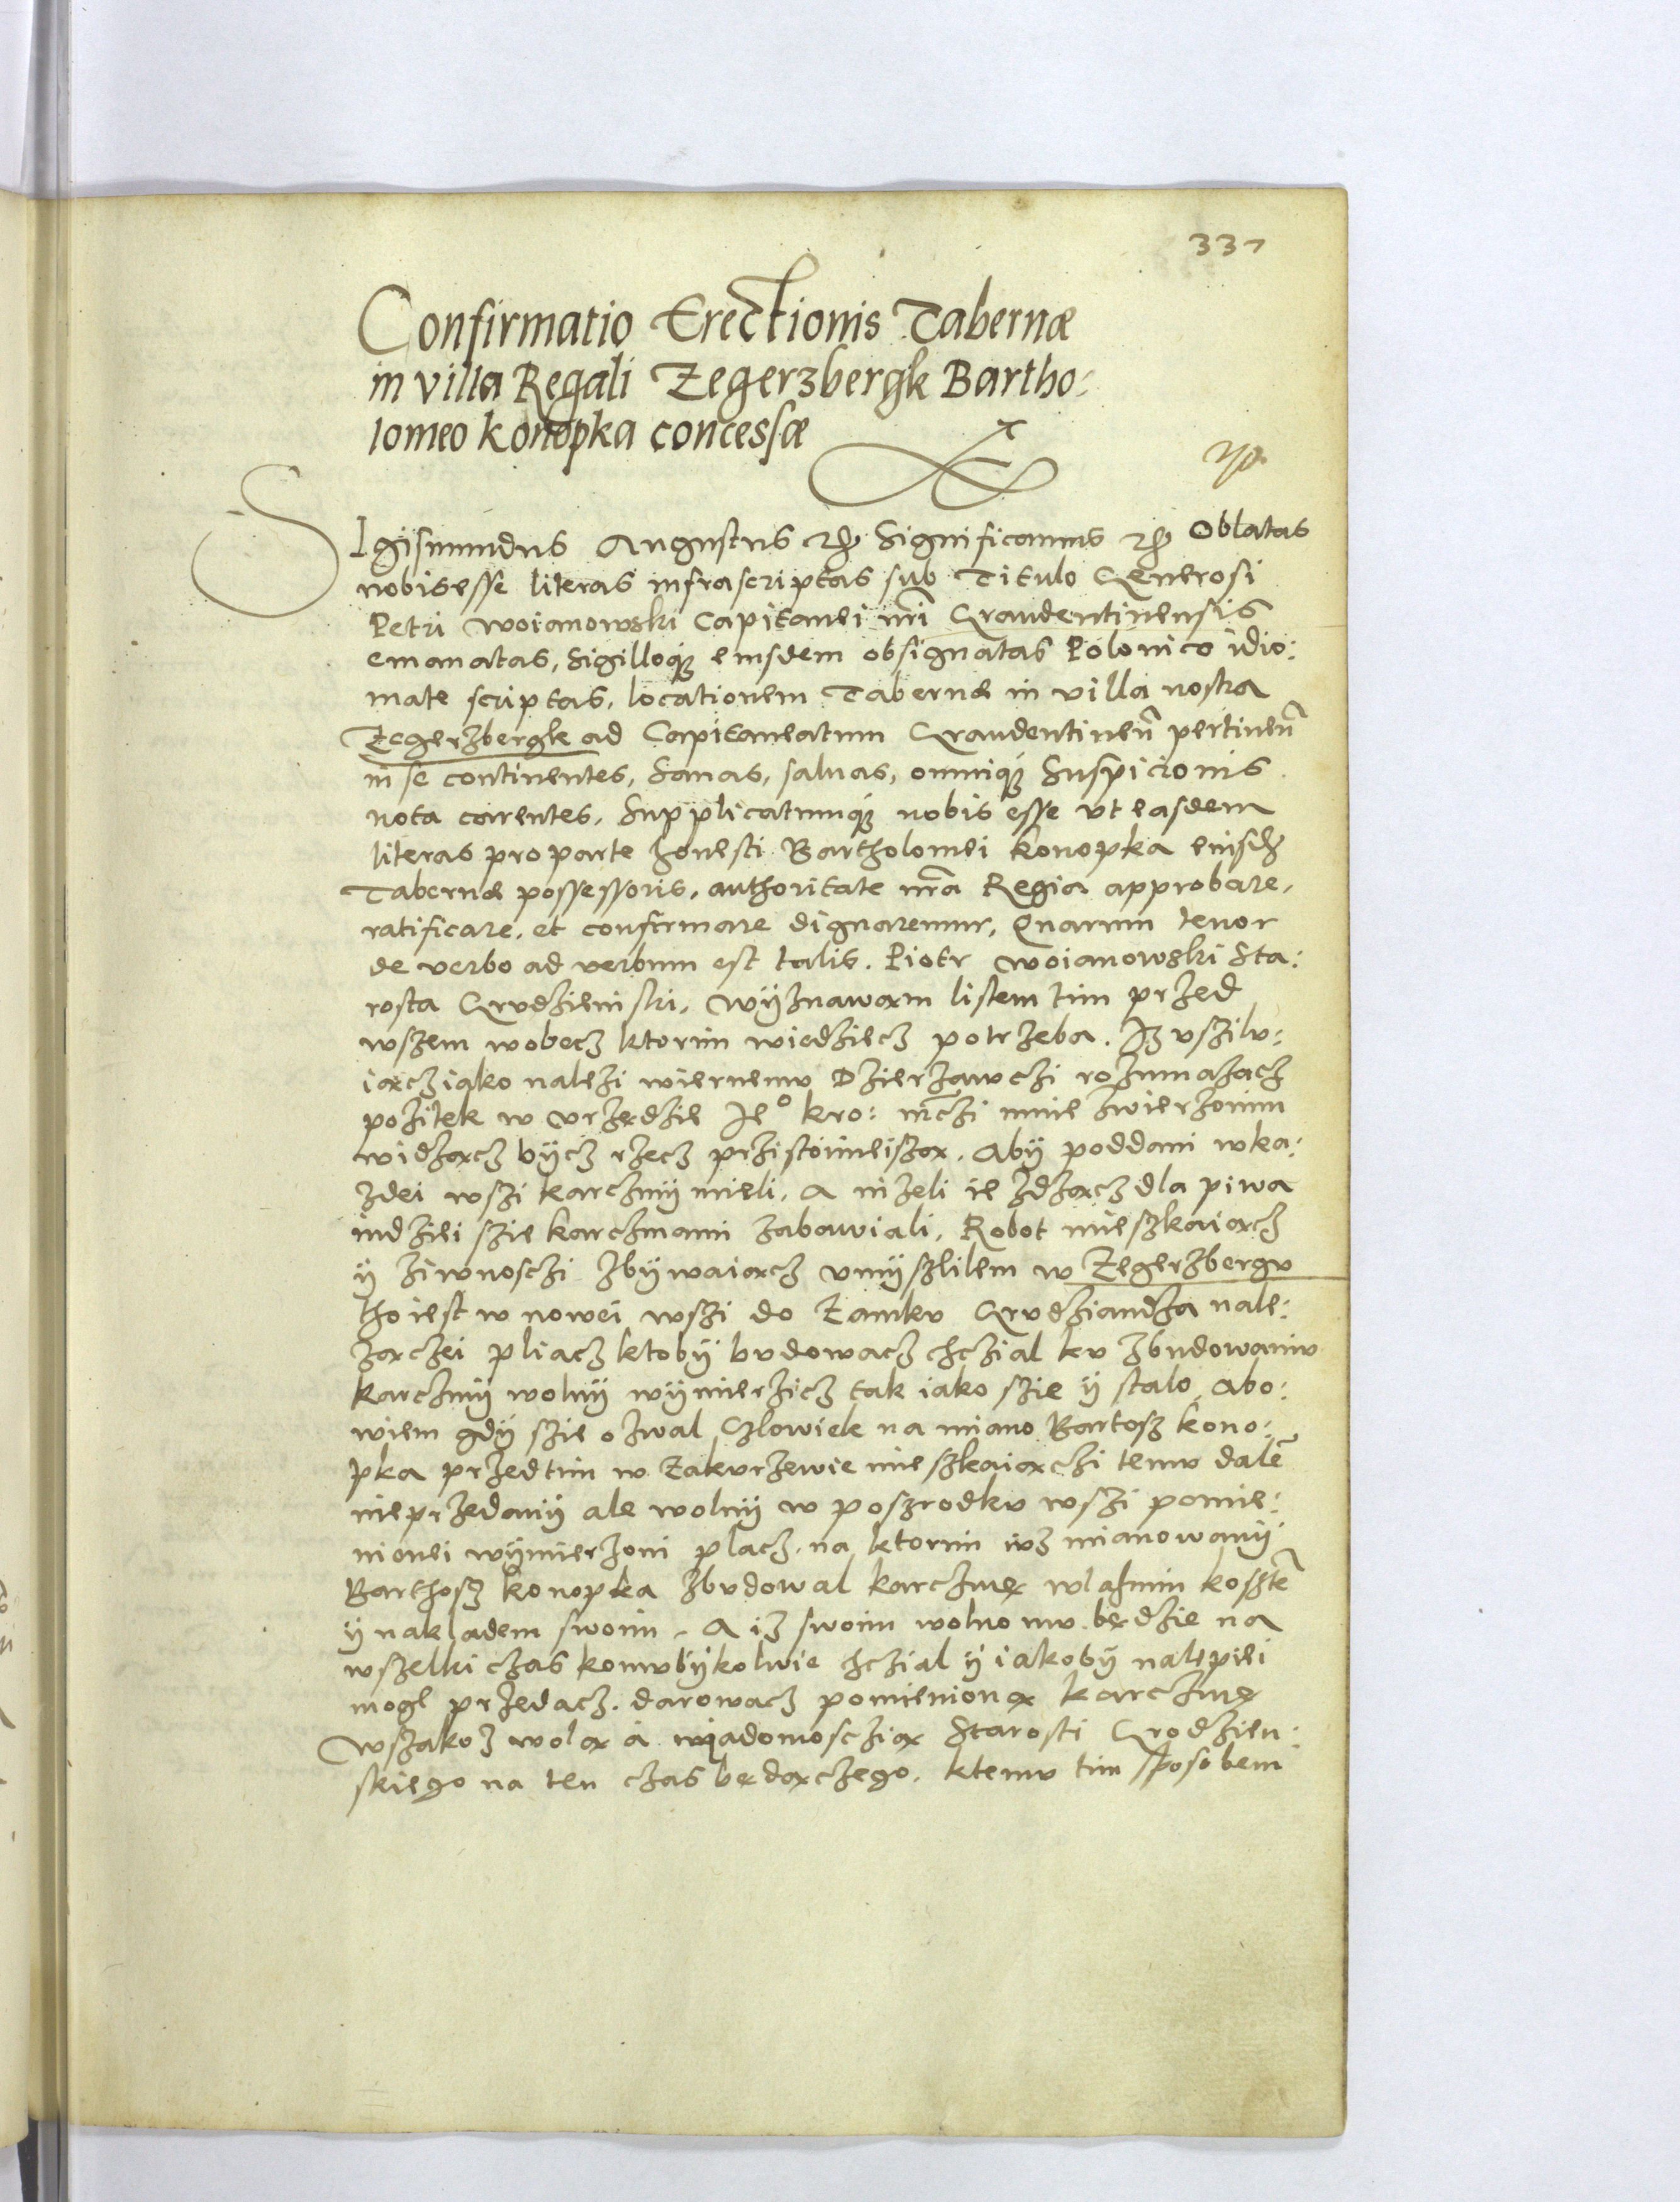 337
Confirmatio Erectionis Tabernæ
in villa Regali Zegerzbergk Bartho:
lomeo Konopka concessæ
SIgismundus Augustus etc Significamus etc Oblatas
nobis esse literas infrascriptas sub Titulo Generosi
Petri Woianowski Capitanei nri Graudentinensis
emanatas, Sigilloqz eiusdem obsignatas Polonico idio:
mate scriptas, locationem Tabernæ in villa nostra
Zegerzbergk ad Capitaneatum Graudentinen pertinen
in se continentes, Sanas, saluas, omniqz Suspicionis
nota carentes, Supplicatumqz nobis esse vt easdem
literas pro parte honesti Bartholomei Konopka eiusd
Tabernæ possessoris, authoritate nra Regia approbare,
ratificare, et confirmare dignaremur, Quarum tenor
de verbo ad verbum est talis. Piotr Woianowski Sta:
rosta Grudzienski, wÿznawam listem tim przed
wszem wobecz ktorim wiedziecz potrzeba. Iz vsziłu:
iącz iako należi wiernemu Dzierzawczi rozmnazacz
pozitek w vrzędzie Ie° kro: mczi mnie zwierzonim
widzącz bÿcz rzecz przistoinieiszą. Abÿ poddani w ka:
zdei wszi karczmÿ mieli, a nizeli ie zdzącz dla piwa
indziei szie karczmami zabawiali, Robot mieszkaiącz
ÿ ziwnosczi zbÿwaiącz vmÿszlilem w Zegerzbergu
tho iest w nowei wszi do Zamku Grudziandza nale:
zączei pliacz ktobÿ budowacz chczial ku zbudowaniu
karczmÿ wolnÿ wÿmierzicz tak iako szie ÿ stalo, abo:
wiem gdÿ szie ozwal Czlowiek na miano Bartosz Kono:
pka przedtim w Zakurzewie mieszkaiączi temu dale
nieprzedanÿ ale wolnÿ w poszrodku wszi pomie:
nionei wÿmierzoni placz, na ktorim iusz mianowanÿ
Barthosz Konopka zbudowal karczmę wlasnim koszte
ÿ nakladem swoim. A iz swoim wolno mu będzie na
wszelki czas komubÿkolwie chczial ÿ iakobÿ nalepiei
mogl przedacz, darowacz pomienioną karczmę
Wszakoz wolą a wiadomoscziią Starosti Grodzien:
skiego na ten czas będączego, ktemu tim sposobem